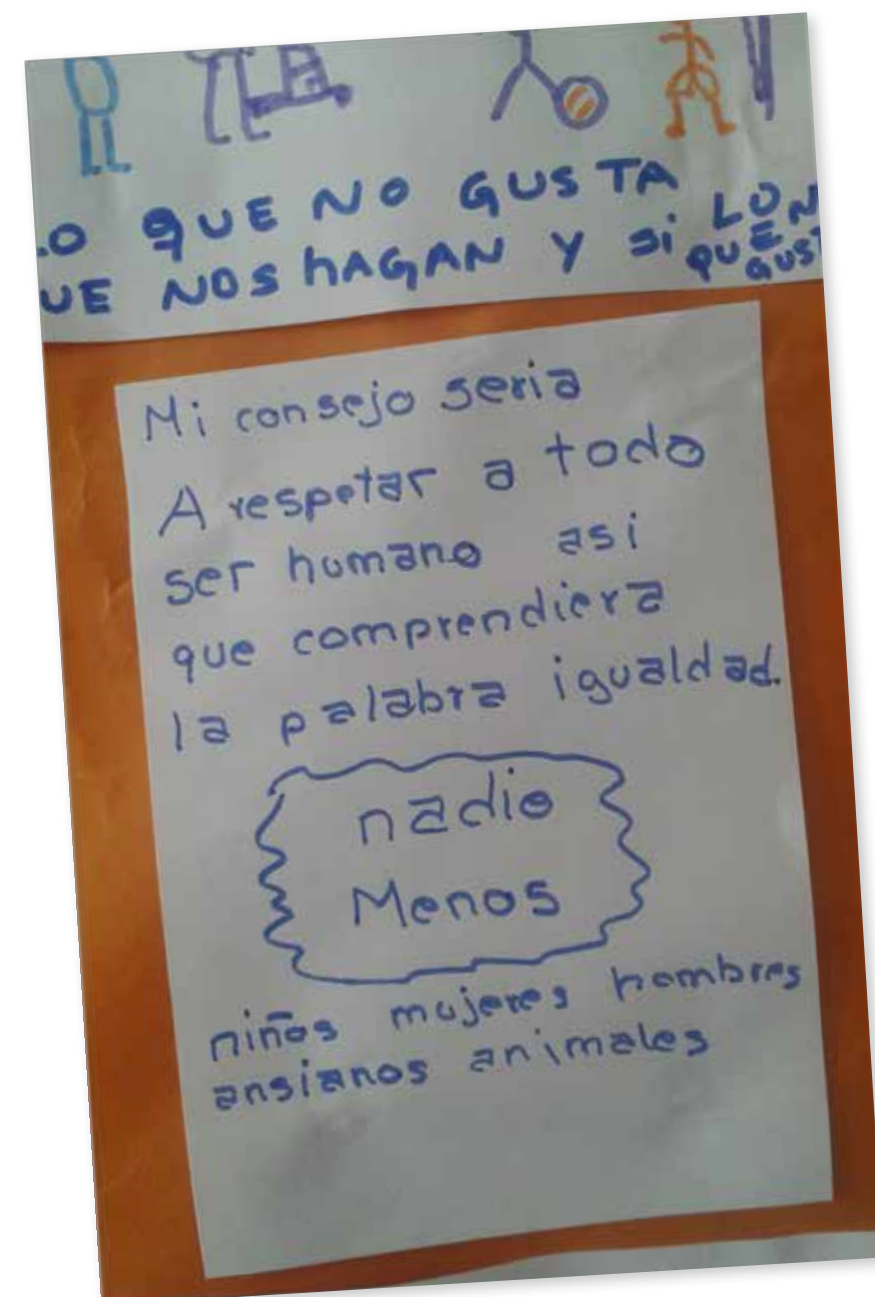 .O QUE NO GUSTA
UE NOS hAGAN Y Si LO
QUE N
GUST
Mi consejo seria
A respetar a todo
ser humano asi
que comprendiera
la palabra igualdad.
nadie
Menos
niños mujeres hombres
ansianos animales